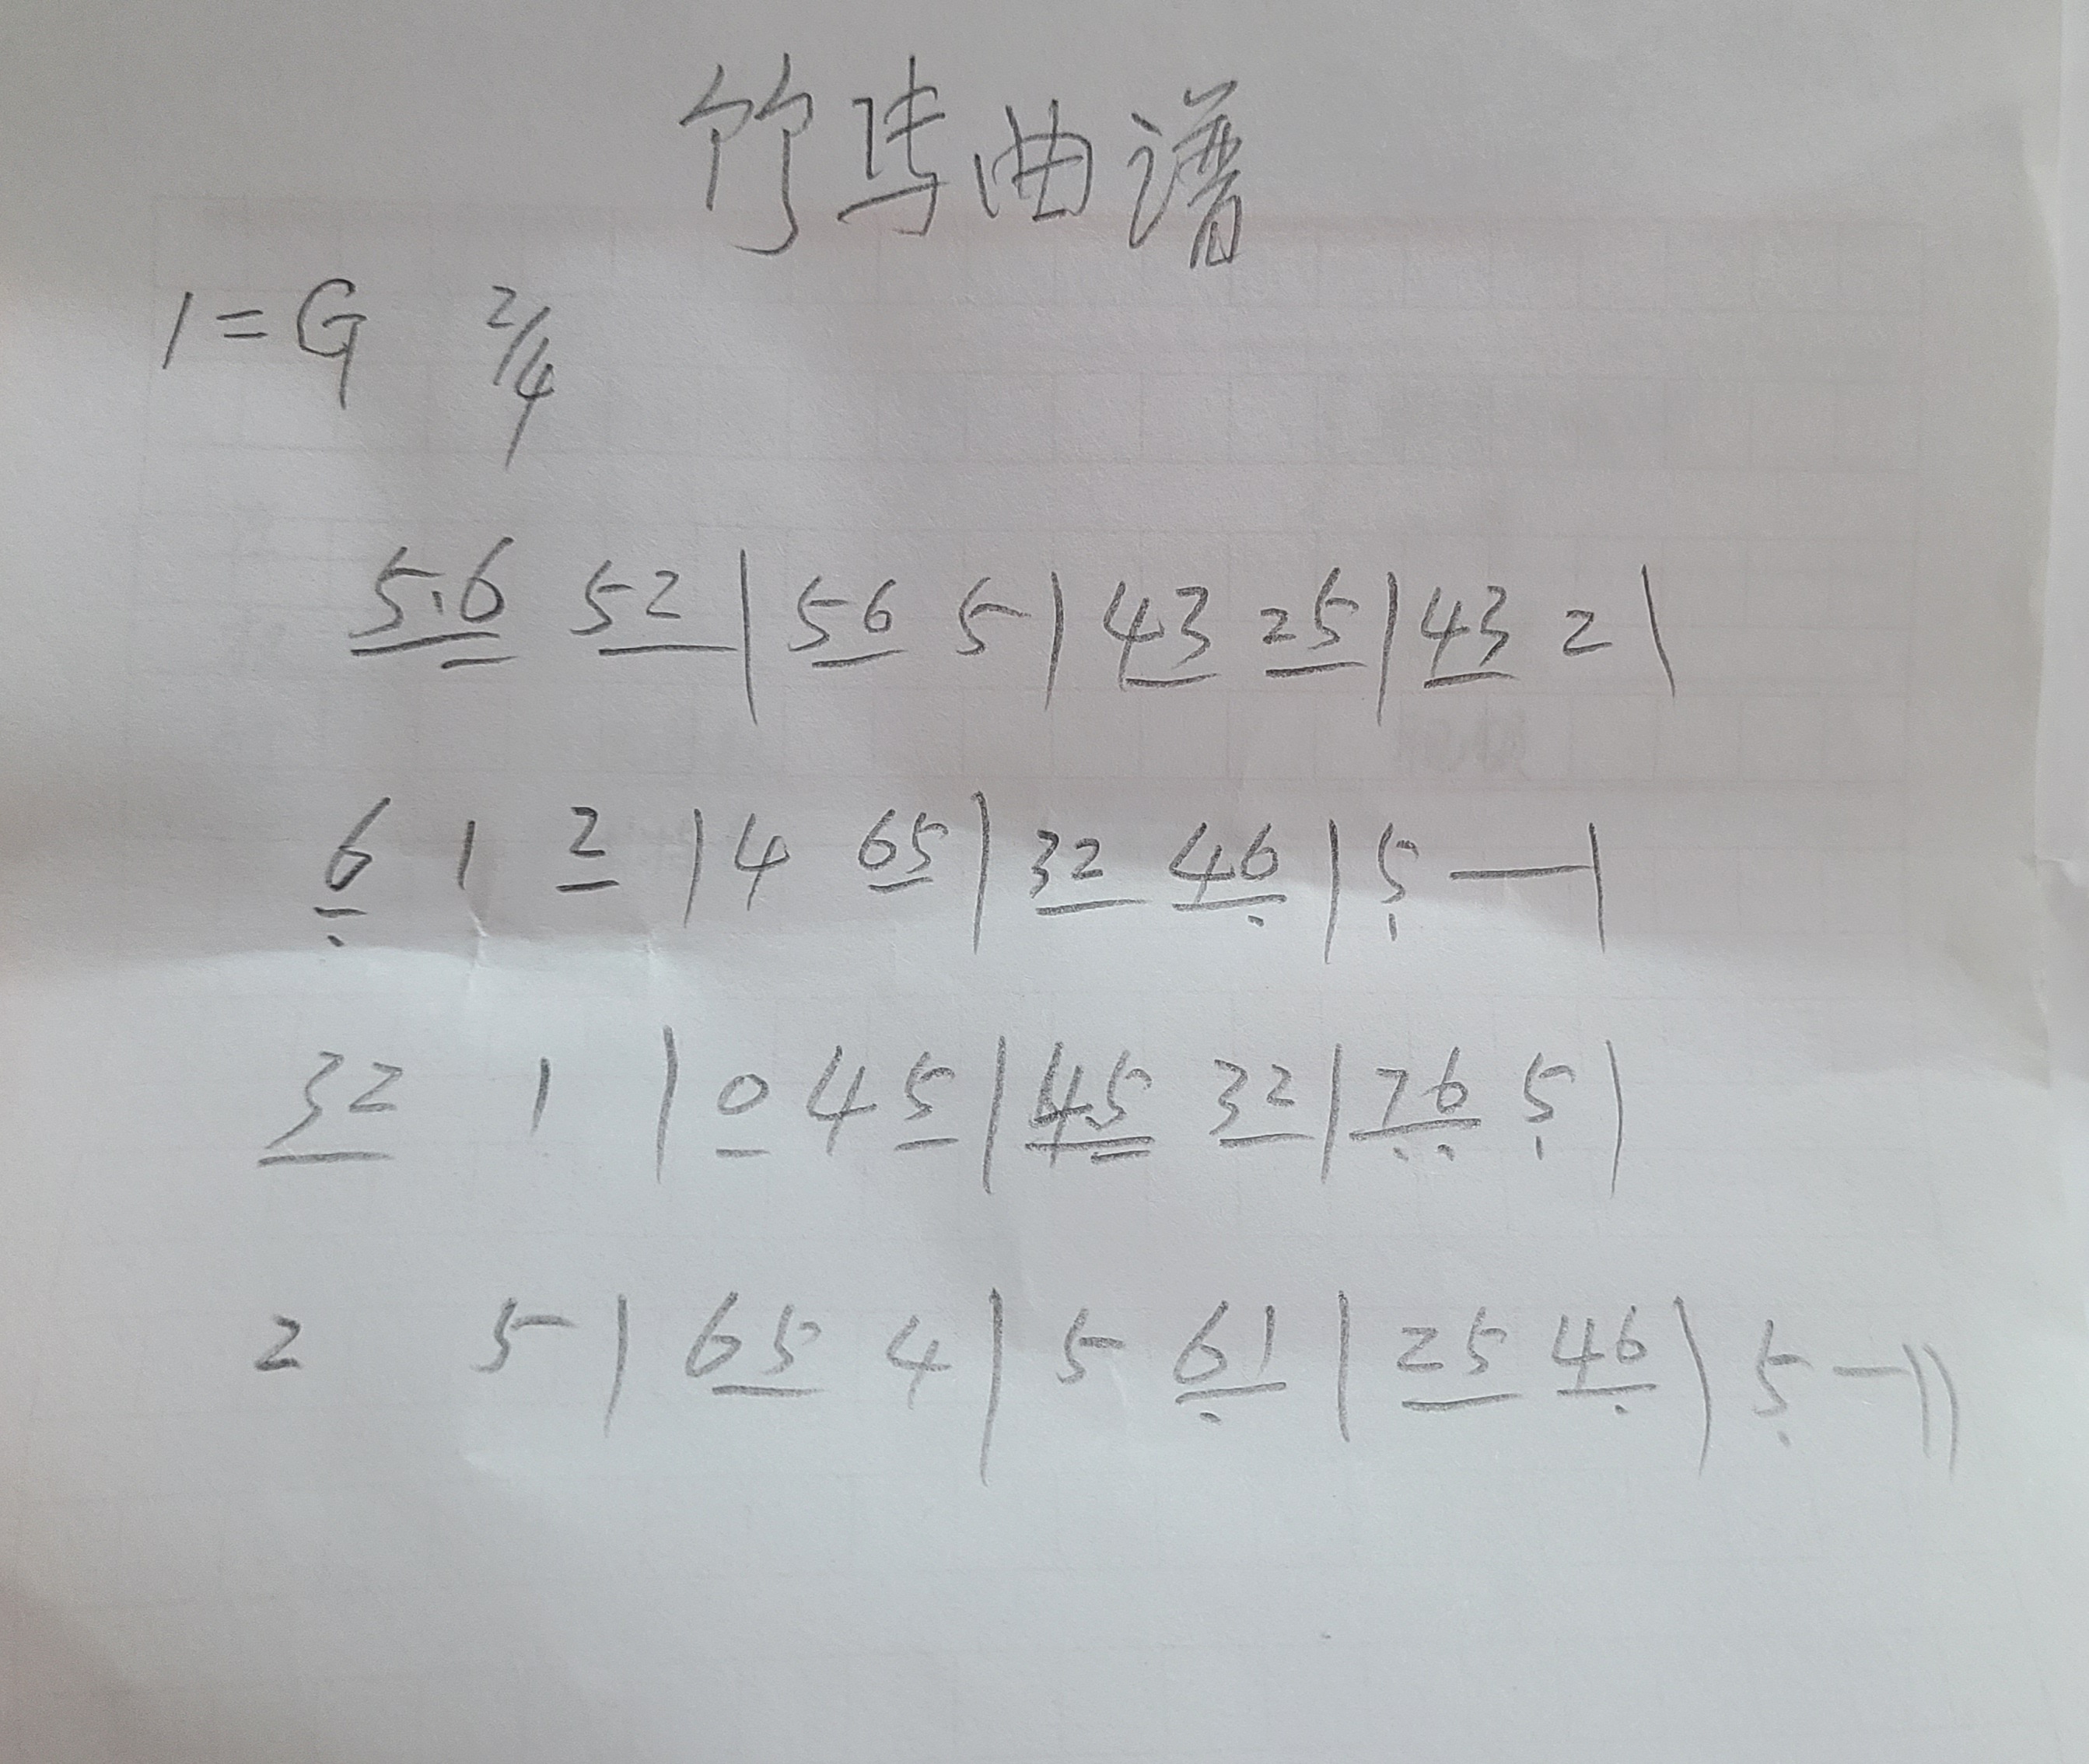 竹马曲谱
1=G 2/4
5.6 52|56 5|43 25|43 2|
6 1 2|4 65|32 46|5 —|
32 1|0 4 5|4.5 32|76 5|
2 5|65 4|5 61|25 46|5 —||